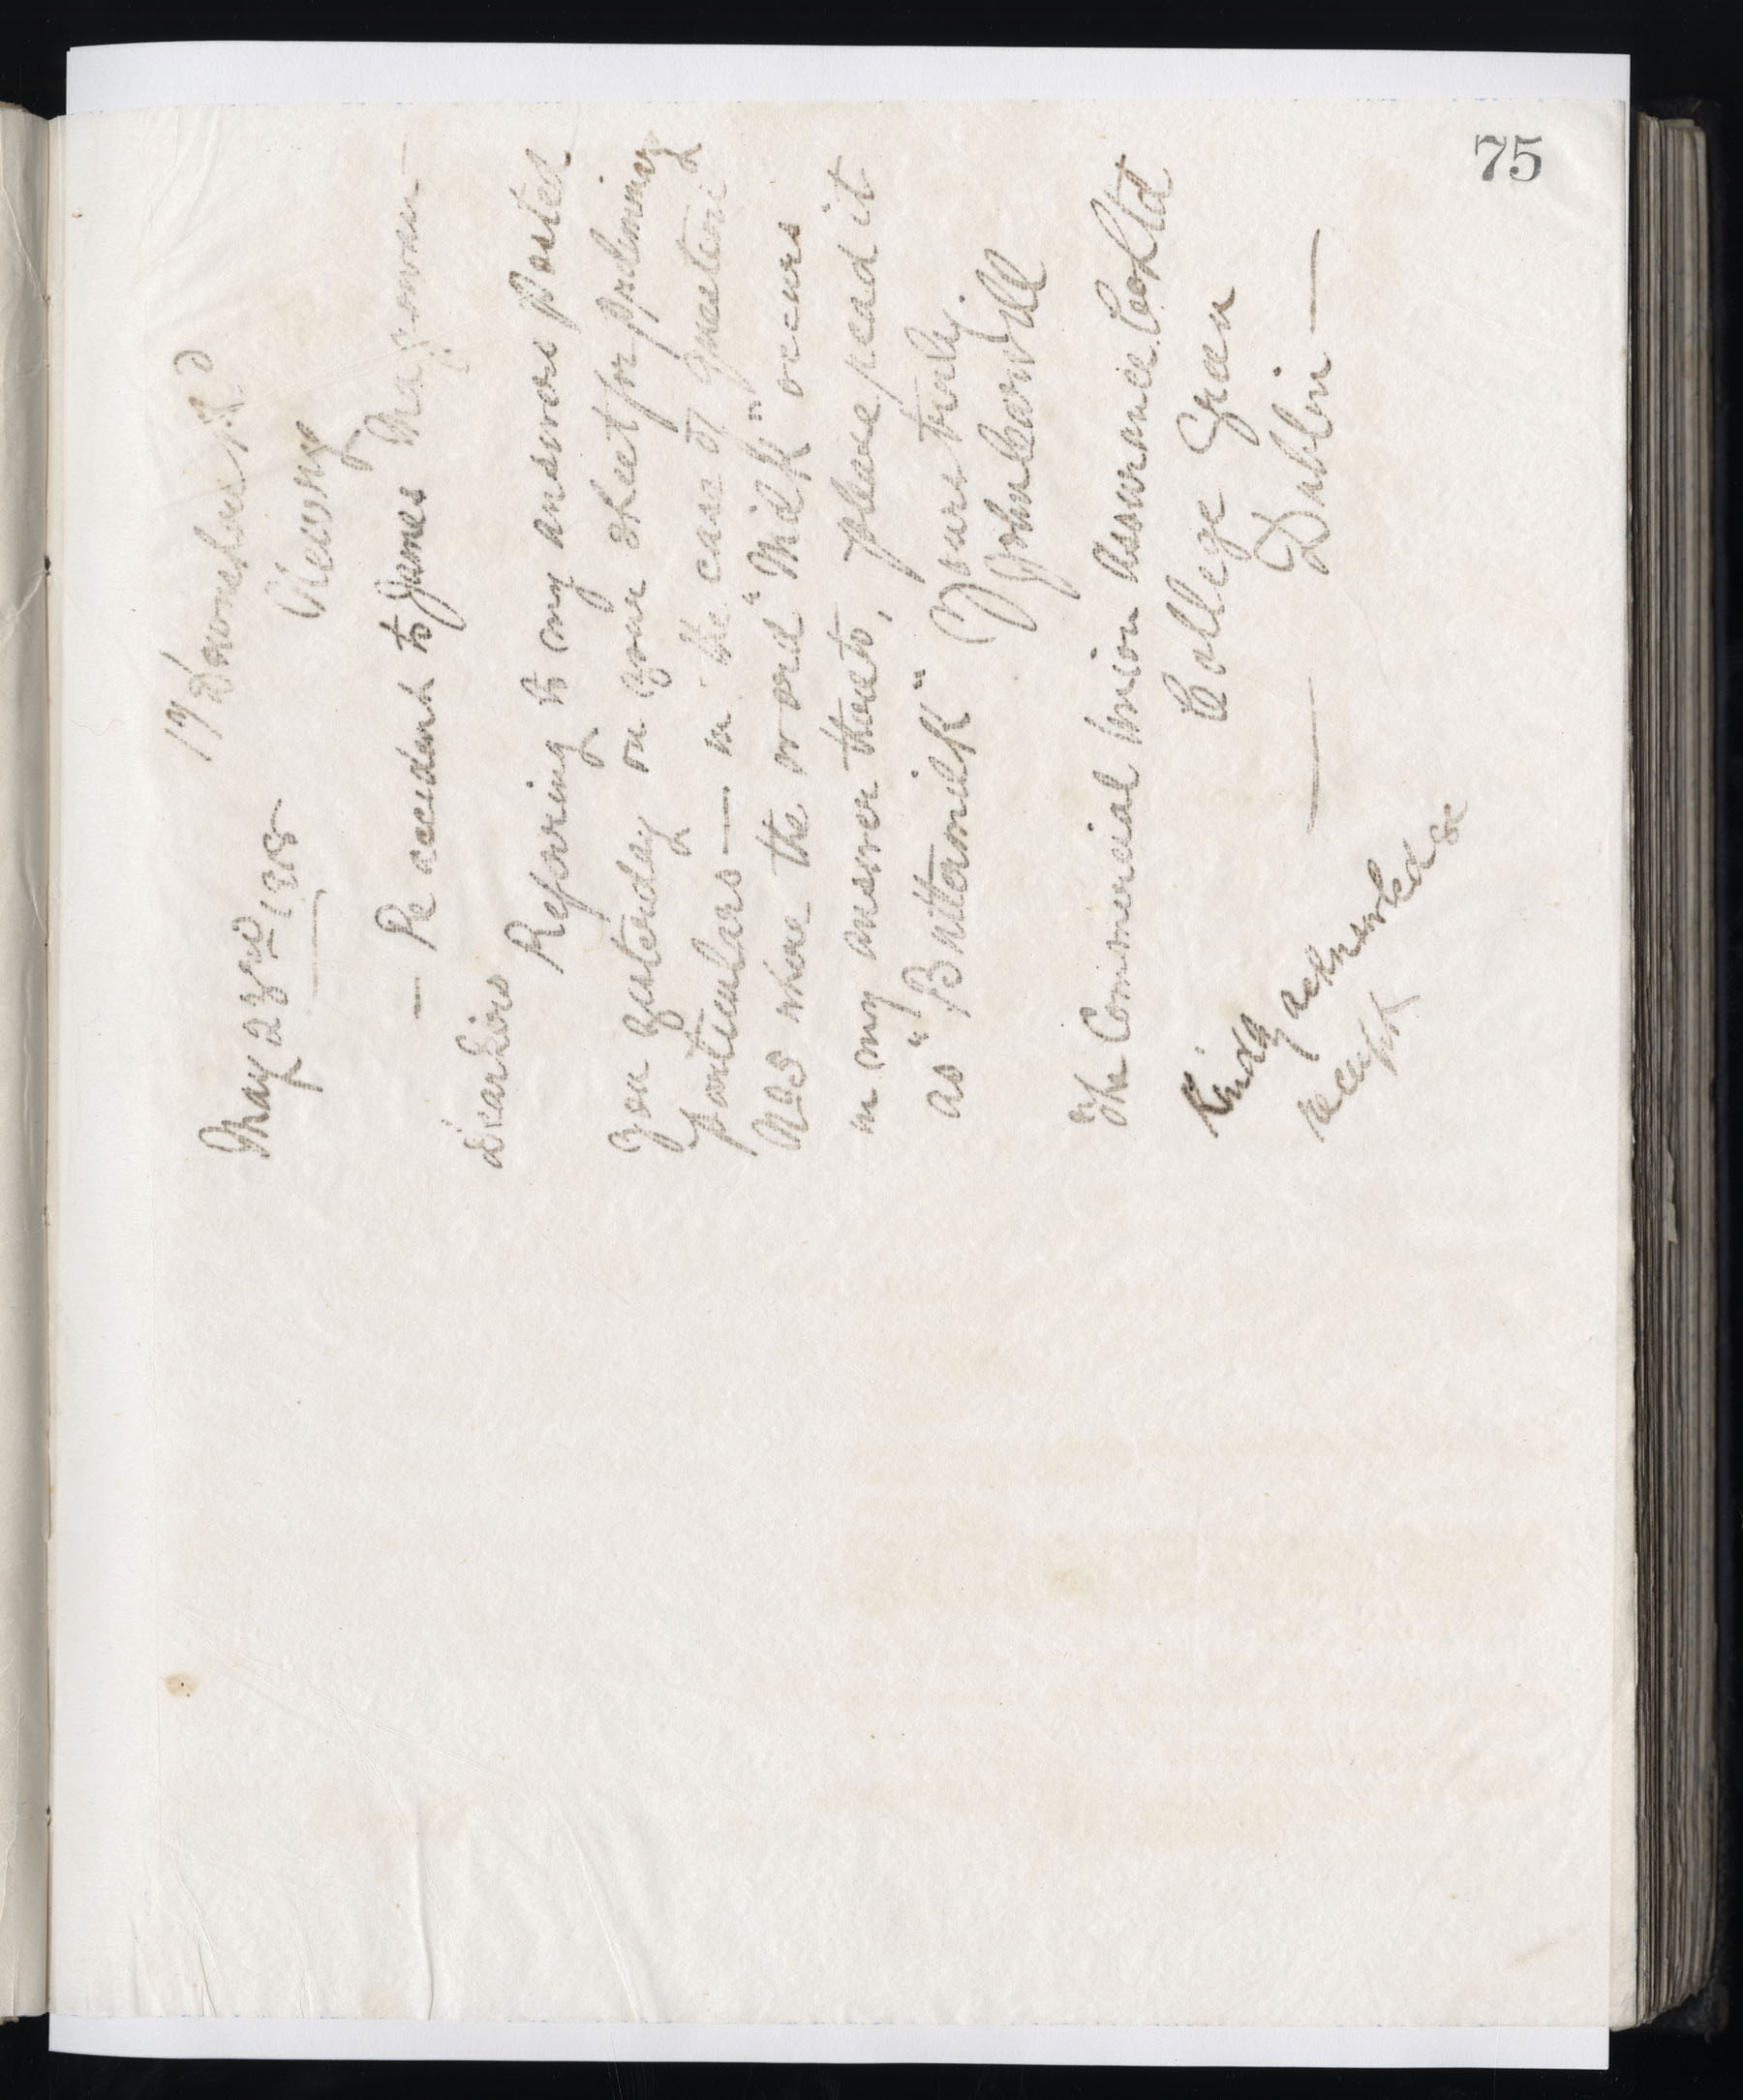 75
17 Downshire Rd
Newry
May 23rd 1918
— Re accident to James Magowan —
Dear Sirs
Referring to my answers posted
you yesterday on your sheet for prelimin'y
particulars — in the case of Question
No 3 where the word "Milk" occurs
in my answer thereto, please read it
as "Buttermilk" Yours truly.
John Carvill
The Commercial Union Assurance Co Ltd
College Green
— Dublin —
Kindly acknowledge
receipt